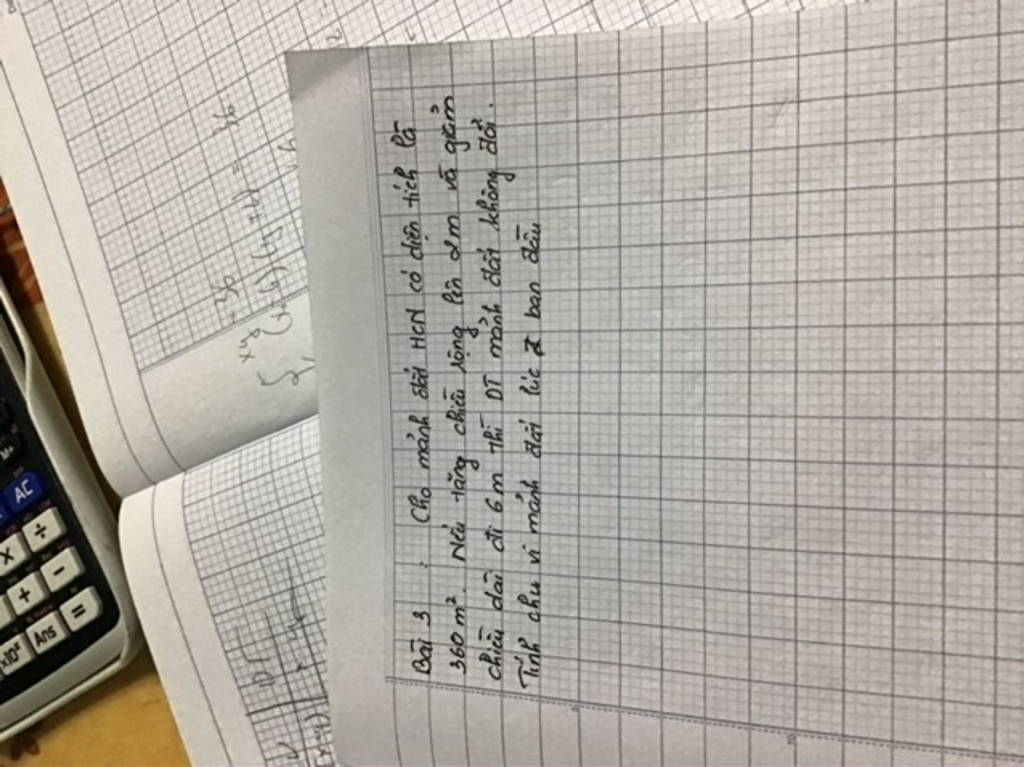 Bài 3 : Cho mảnh đất HCN có diện tích là
360 m². Nếu tăng chiều rộng lên 2m và giảm
chiều dài đi 6m thì DT mảnh đất không đổi.
Tính chu vi mảnh đất lúc ban đầu
M+
AC
×
÷
+
-
×10ˣ
Ans
=